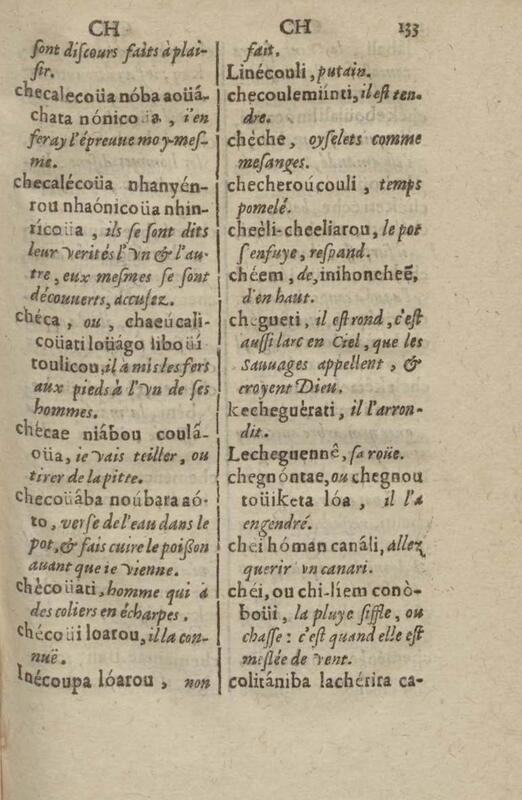 CH
ſont diſcours faits à plai-
ſir.
checalecoüa nóba aoüá-
chata nónico a, i'en
feray l'épreuue moy-meſ-
me.
checalécoüa nhanyén-
rou nhaónicoüa nhin-
ricoüa, ils ſe ſont dits
leur verités l'vn & l'au-
tre, eux meſmes ſe ſont
découuerts, accuſez.
chéca, ou, chaeúcali-
coüati loüágo liboüi
toulicou, il à mis les fers
aux pieds à l'vn de ſes
hommes.
chécae niábou coulá-
oüa, ie vais teiller, ou
tirer de la pitte.
checoüába noúbara aó-
to, verſe de l'eau dans le
pot, & fais cuire le poiſſon
auant que ie vienne.
chècoüati, homme qui à
des coliers en écharpes.
chécoüi loarou, illa con-
nuë.
Inécoupa lóarou, non
CH 133
fait.
Linécouli, putain.
checoulemiínti, il eſt ten-
dre.
chèche, oyſelets comme
meſanges.
checheroúcouli, temps
pomelé.
cheèli-cheeliarou, le pot
s'enfuye, reſpand.
chéem, de, inihoncheẽ,
d'en haut.
chegueti, il eſt rond, c'eſt
auſſi larc en Ciel, que les
sauuages appellent, &
croyent Dieu.
kecheguérati, il l'arron-
dit.
Lecheguennê, ſa roüe.
chegnóntae, ou chegnou
toüiketa lóa, il l'a
engendré.
chei hóman canáli, allez
querir vn canari.
chéi, ou chi-líem conò-
boüi, la pluye ſiffle, ou
chaſſe: c'eſt quand elle eſt
meſlée de vent.
colitániba lachérira ca-